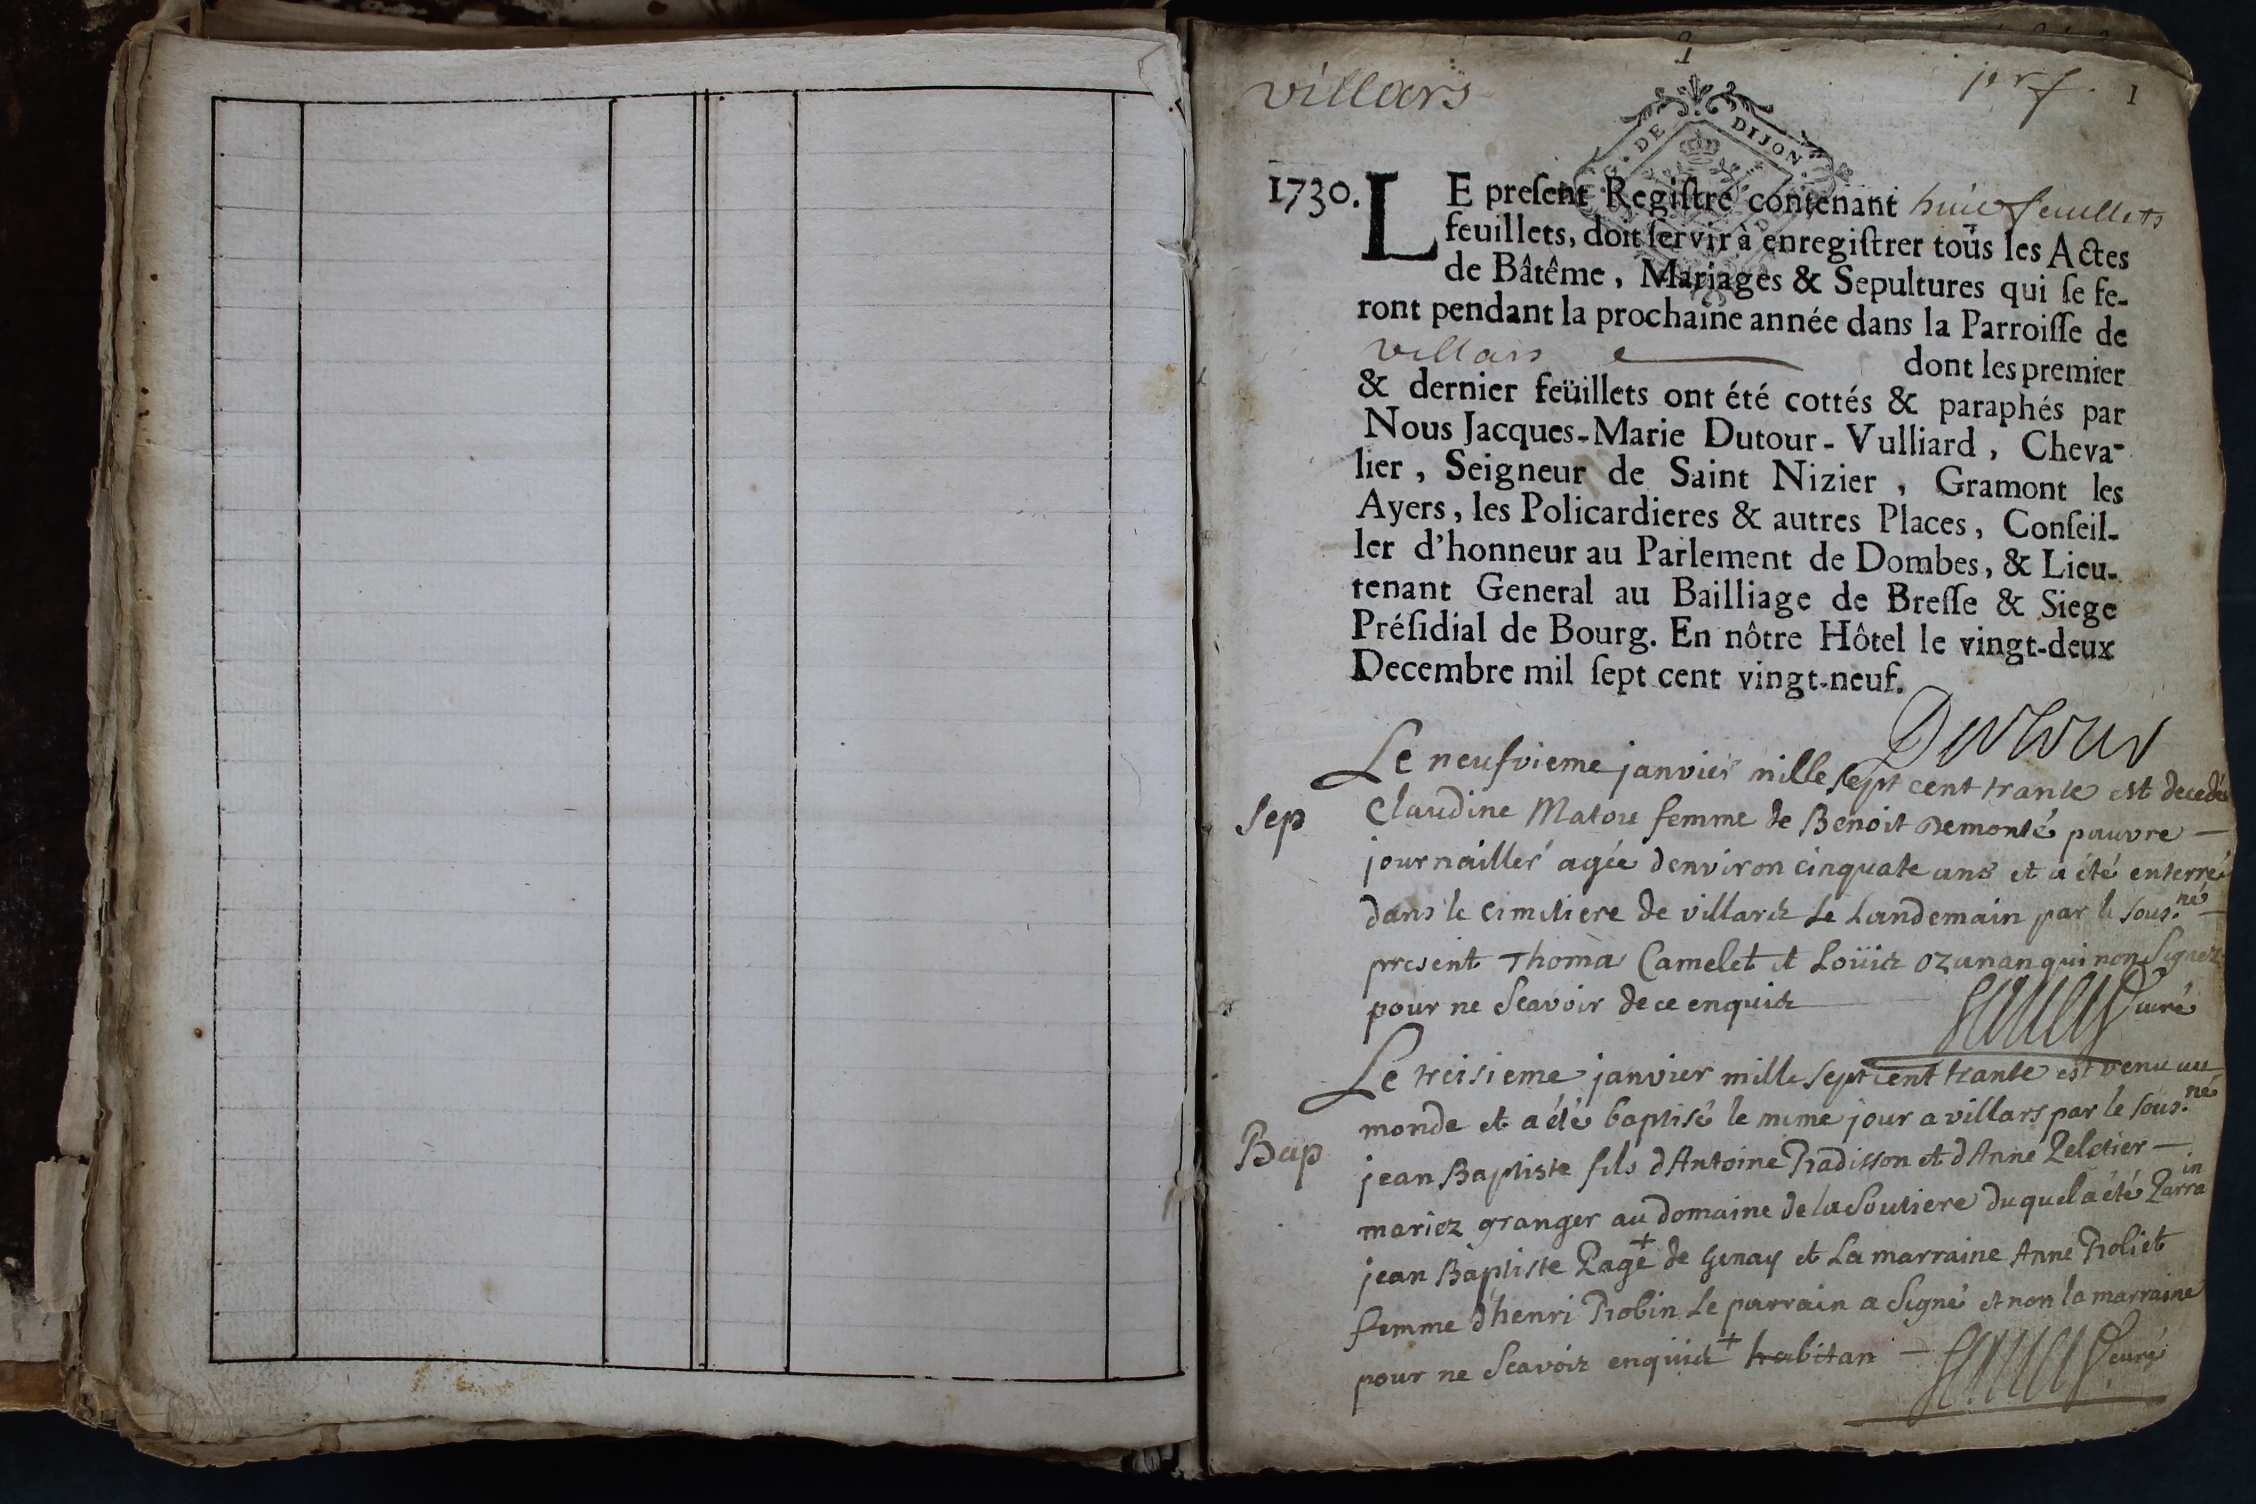 1
villars
1er f.
1
G. DE DIJON
1730. LE preſent Regiſtre contenant huit feuillets
feuillets, doit ſervir à enregiſtrer tous les Actes
de Bâtême, Mariages & Sepultures qui ſe fe-
ront pendant la prochaine année dans la Parroiſſe de
villars dont les premier
& dernier feüillets ont été cottés & paraphés par
Nous Jacques-Marie Dutour-Vulliard, Cheva-
lier, Seigneur de Saint Nizier, Gramont les
Ayers, les Policardieres & autres Places, Conſeil-
ler d'honneur au Parlement de Dombes, & Lieu-
tenant General au Bailliage de Breſſe & Siege
Préſidial de Bourg. En nôtre Hôtel le vingt-deux
Decembre mil ſept cent vingt-neuf.
Dutour
Le neufvieme janvier mille sept cent trante est decedée
Sep
Claudine Matou femme de Benoit Demonté pauvre
journailler agée denviron cinquate ans et a été enterré
dans le cimitiere de villards le Landemain par le sous.né
present Thoma Camelet et Loüis Ozanan qui non Signez
pour ne Scavoir de ce enquis
curé
Le treisieme janvier mille sept cent trante est venu au
monde et a été baptisé le mime jour a villars par le sous.né
Bap
jean Baptiste fils dAntoine Pradisson et dAnne Peletier
mariez granger au domaine de la Soutiere duquel a été Parrain
jean Baptiste Page + de Genay et La marraine Anne Proliet
femme dhenri Probin Le parrain a Signé et non la marraine
pour ne Scavoir enquis + habitan
curé